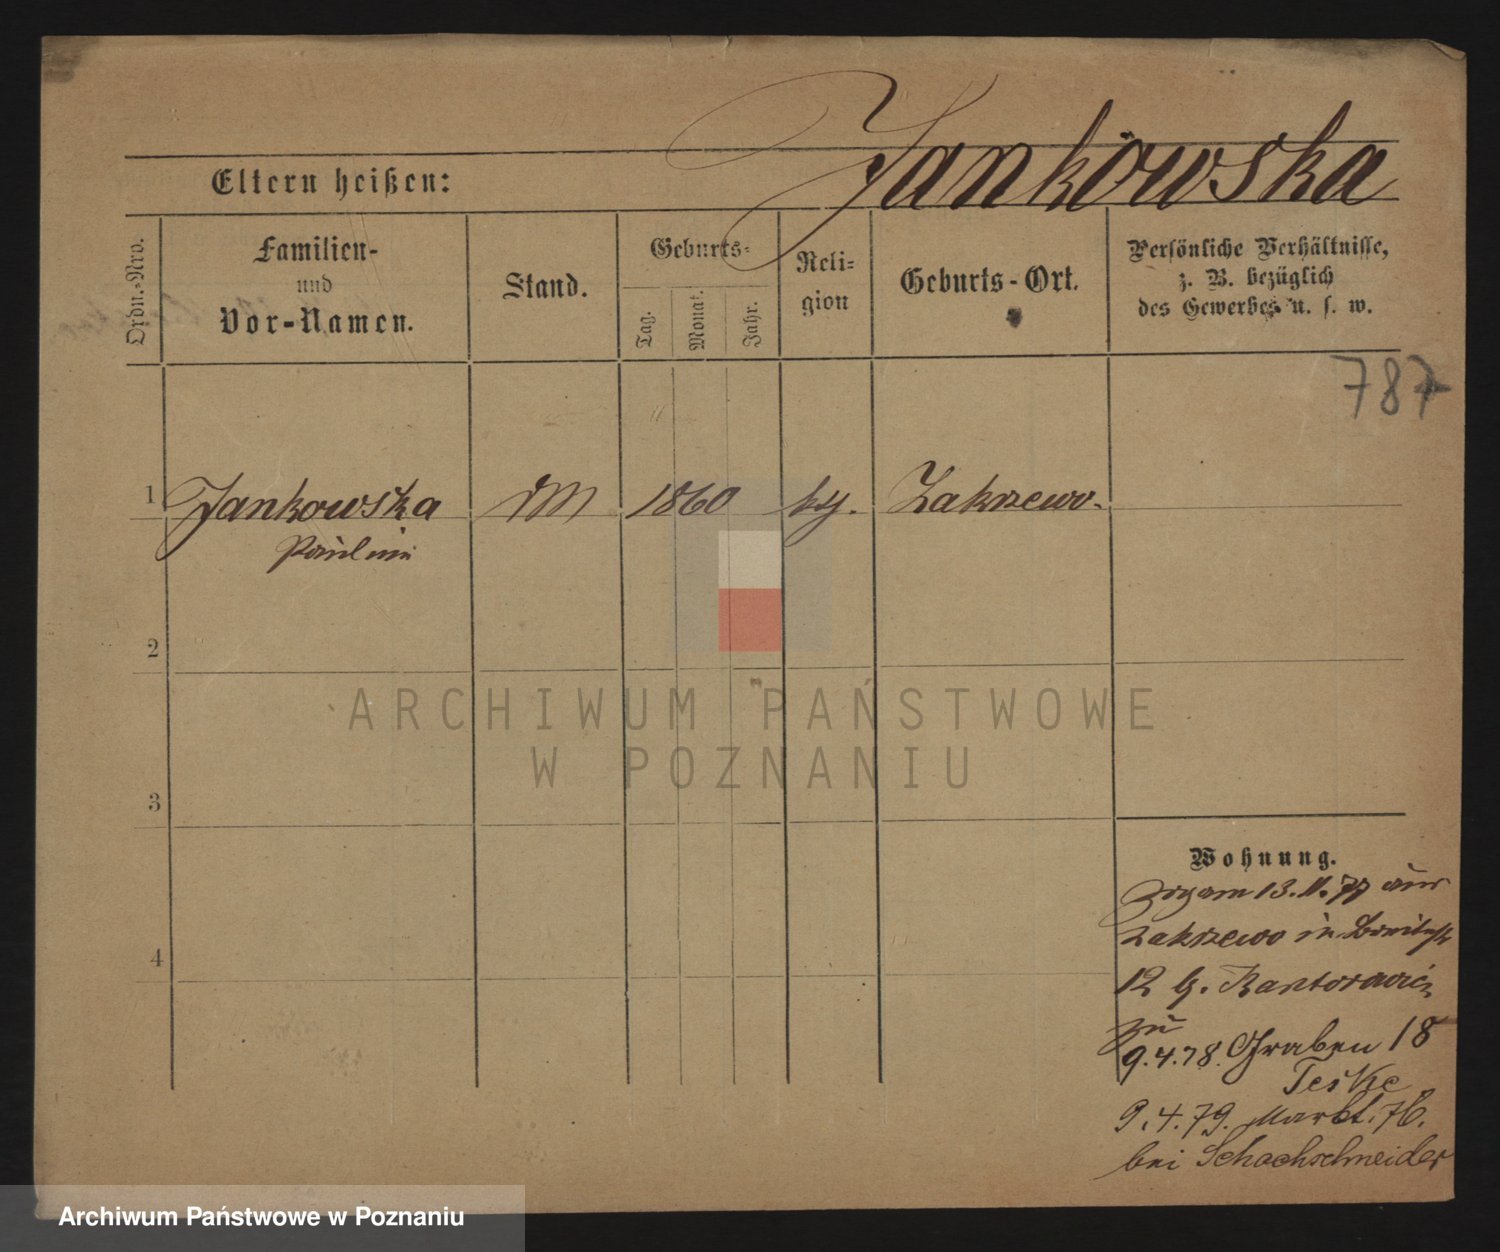 Jankowska
Eltern heißen:
Ordn.-Nro.
Familien-
und
Vor-Namen.
Stand.
Geburts-
Tag.
Monat.
Jahr.
Reli-
gion
Geburts-Ort.
Persönliche Verhältnisse,
z. B. bezüglich
des Gewerbes u. s. w.
787
1 Jankowska DM 1860 kg. Zakrzewo.
Pauline
2
ARCHIWUM PAŃSTWOWE
W POZNANIU
3
Wohnung.
Zog am 13.11.77 aus
Zakrzewo in
4
12 b. Kantorowicz
zu
9.4.78. Graben 18
Teske
9.4.79. Markt. 76.
bei Schachschneider
Archiwum Państwowe w Poznaniu